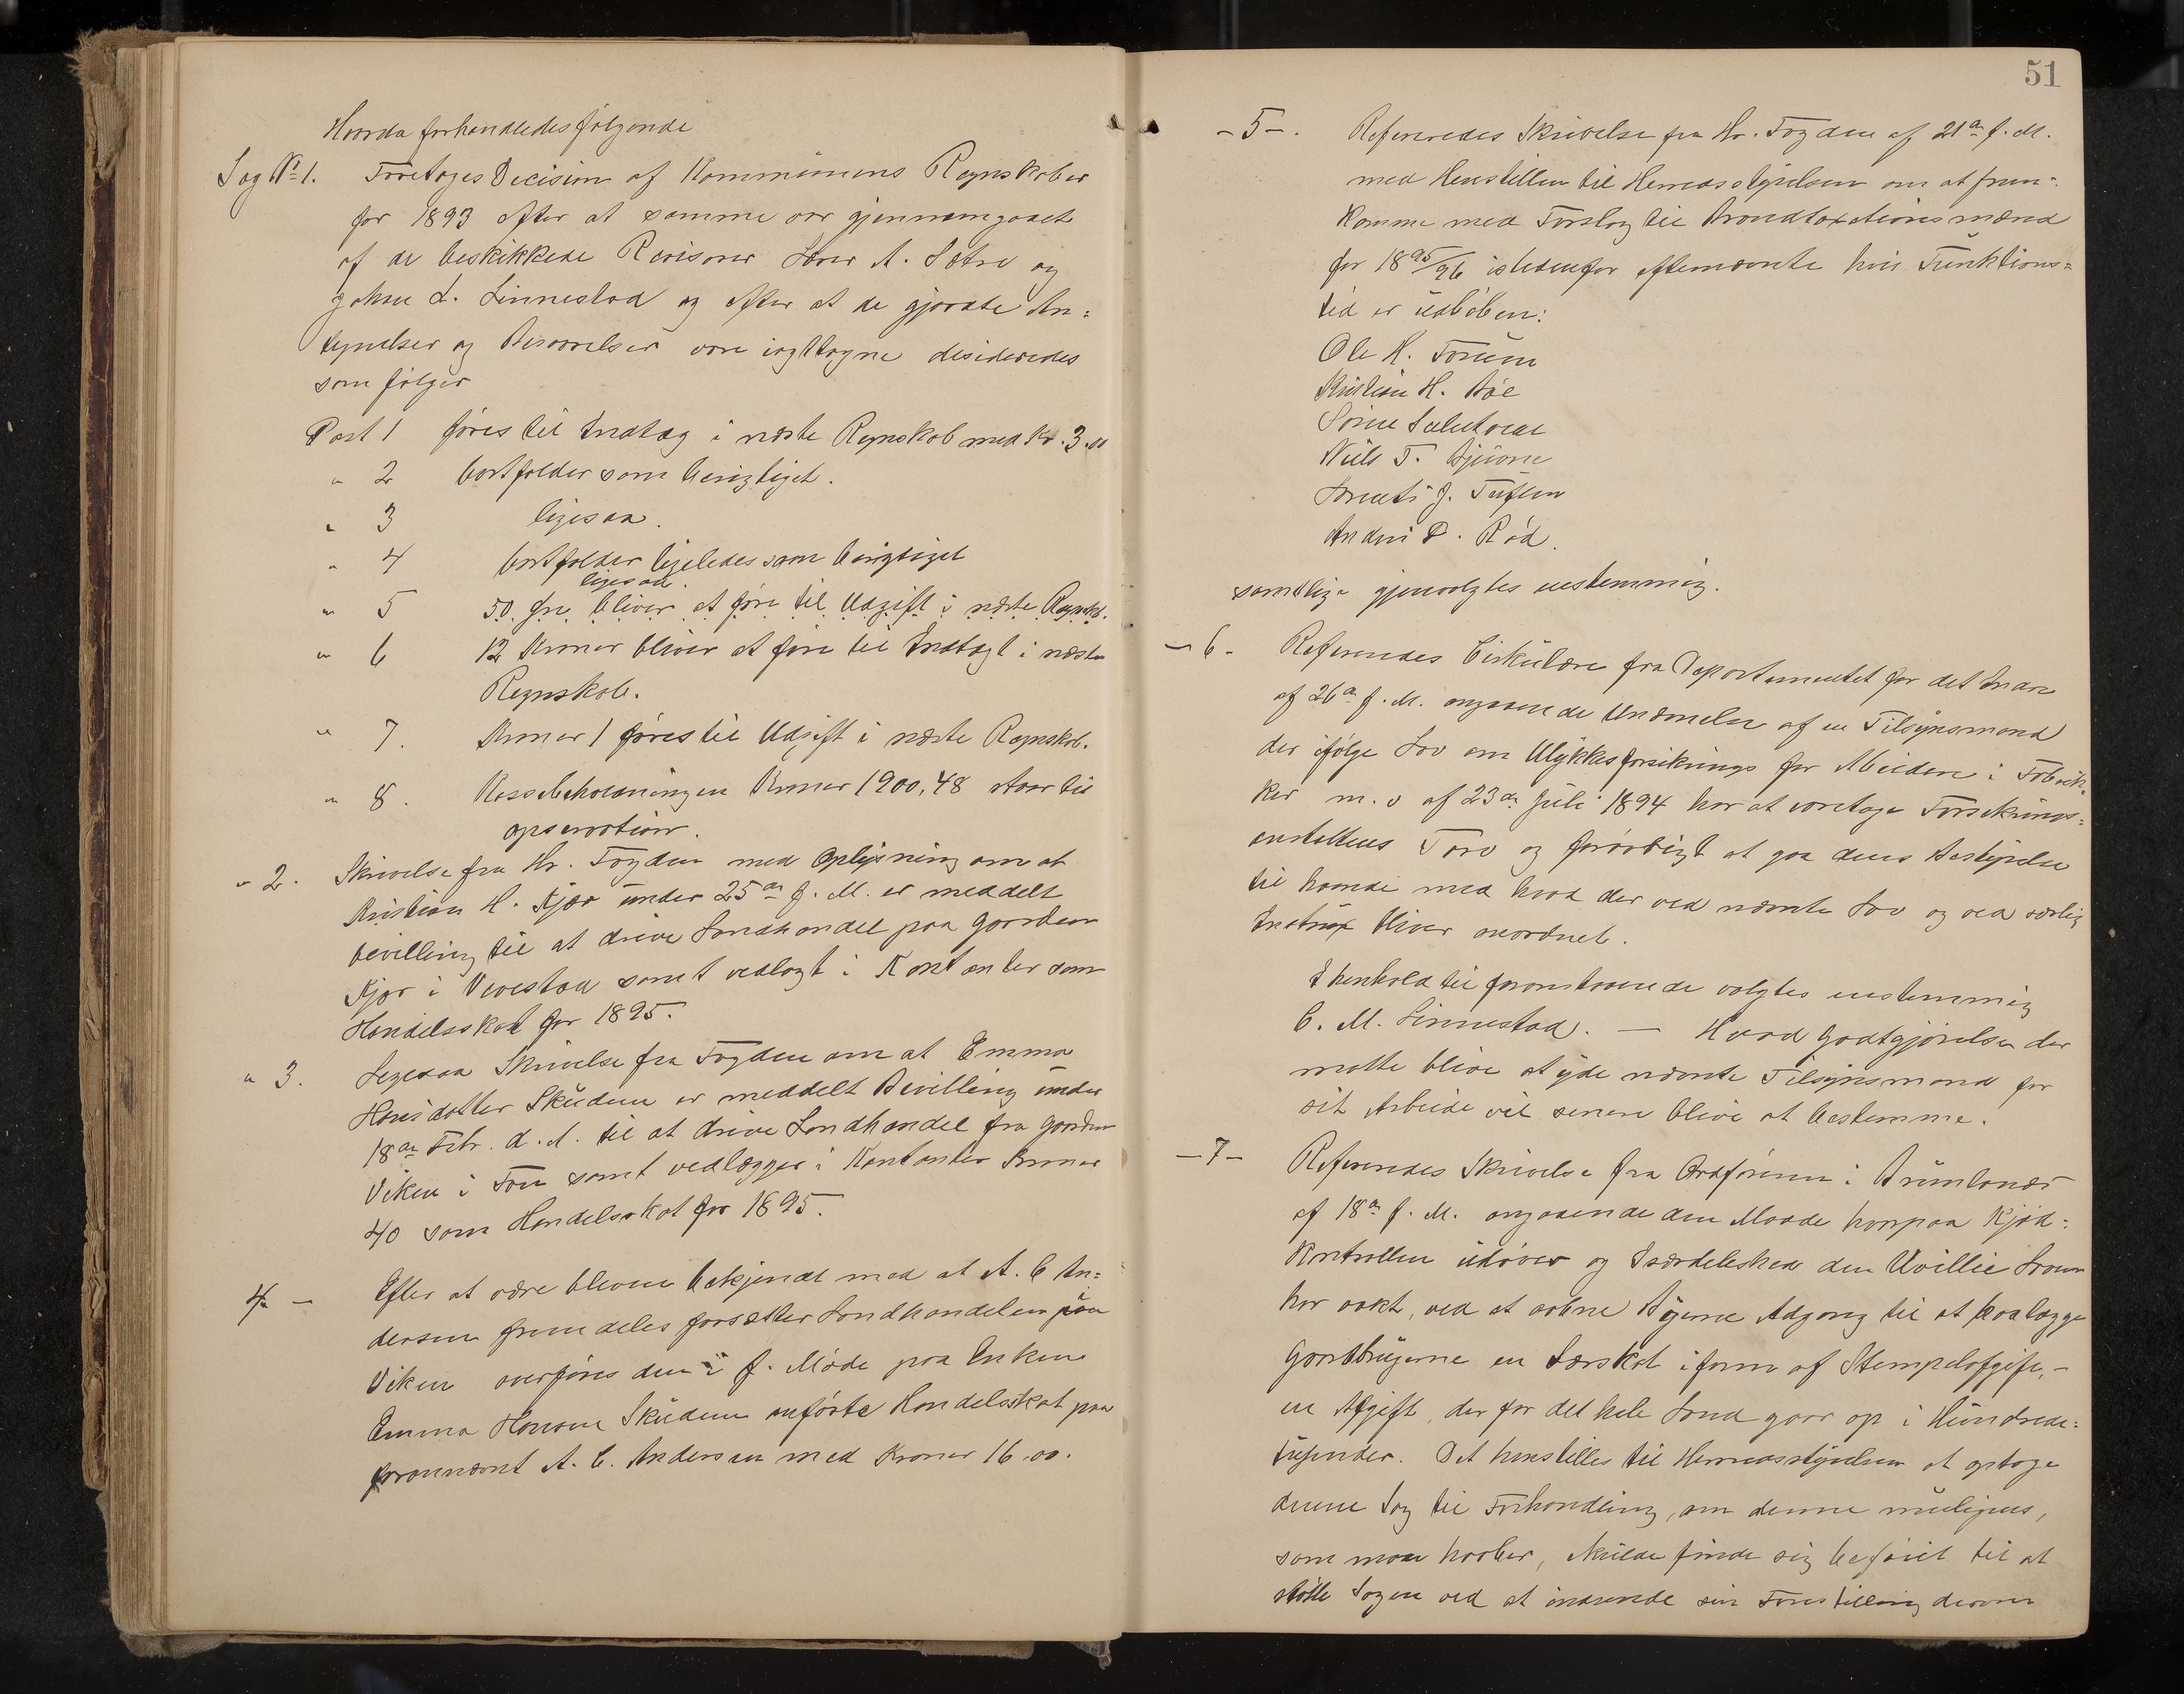 Hvorda forhandledes følgende
Sag No 1. Foretoges Decision af Kommunens Regnskaber
for 1893 efter at samme var gjennemgaaet
af de beskikkede Revisorer Lærer A. Sætre og
Johan L. Linnestad og efter at de gjorde An=
tegnelser og Besvarelser vare iagttagne desideredes
som følger
Post 1 føres til Indtæg i næste Regnskab med Kr. 3.00
" 2 bortfalder som berigtiget.
" 3 ligesaa.
" 4 bortfalder ligeledes som berigtiget
ligesaa.
" 5 50 Øre bliver at føre til Udgift i næste Regnskb.
" 6 12 Kroner bliver at føre til Indtægt i næste
Regnskab.
" 7. Kroner 1 føres til Udgift i næste Regnskab.
" 8. Kassebeholdningen Kroner 1900,48 staar til
observation.
" 2. Skrivelse fra Hr. Fogden med Oplysning om at
Kristian H. Kjær under 25de f. M. er meddelt
bevilling til at drive Landhandel paa Gaarden
Kjær i Vivestad samt vedlagt i Kontanter som
Handelsskat for 1895.
" 3. Ligesaa Skrivelse fra Fogden om at Emma
Hansdatter Skuden er meddelt Bevilling under
18de Febr. d. A. til at drive Landhandel fra Gaarden
Viken i Fon samt vedlægger i Kontanter Kroner
40 som Handelsskat for 1895.
4 — Efter at være bleven bekjendt med at A. C An=
dersen fremdeles forsætter Landhandelen paa
Viken overføres den i f. Møde paa Enken
Emma Hansen Skuden anførte Handelsskat paa
forannævnt A. C. Andersen med Kroner 16.00.
51
- 5 - . Refereredes Skrivelse fra Hr. Fogden af 21de f. M.
med Henstillen til Herredsstyrelsen om at frem=
komme med Forslag til Brandtaxationsmænd
for 1895/96 istedenfor eftenævnte hvis Funktions=
tid er udløben:
Ole H. Forum
Kristian H. Bøe
Søren
Niels T. Bjuerne
Lorents J. Tuften
Andris P. Rød.
samtlige gjenvalgtes enstemmig.
— 6 - Refereredes Cirkulære fra Departementet for det Indre
af 26de f. M. angaaende Udnævnelse af en Tilsynsmand
der ifølge Lov om Ulykkesforsikrings for Arbeidere i Fabrik=
ker m. v af 23de Juli 1894 har at varetage Forsikrings=
anstaltens Tarv og forøvrigt at gaa dens Bestyrelse
til haande med hvad der ved nævnte Lov og ved særlig
Instrux bliver anordnet.
I henhold til foranstaaende valgtes enstemmig
C. M. Linnestad. — Hvad Godtgjørelse der
maatte blive at yde nævnte Tilsynsmand for
sit Arbeide vil senere blive at bestemme.
— 7 - Refereredes Skrivelse fra Ordføreren i Brunlanæs
af 18de f. M. angaaende den Maade hvorpaa Kjød=
kontrollen udøves og Isærdeleshed den Uvillie Loven
har vakt, ved at aabne Byerne Adgang til at paalægge
Gaardbrugerne en Særskat i form af Stempelafgift, -
en Afgift, der for det hele Land gaar op i Hundrede=
tusender. Det henstilles til Herredsstyrelsen at optage
denne Sag til Forhandling, om denne muligens,
som man haaber, skulde finde sig beføiet til at
støtte Sagen ved at indsende sin Forestilling derom